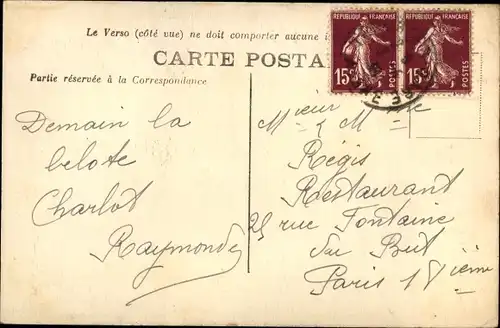 Le Verso (côté vue) ne doit comporter aucune
CARTE POSTA
Partie réservée à la Correspondance
REPUBLIQUE FRANÇAISE
15c
POSTES
REPUBLIQUE FRANÇAISE
15c
POSTES
Demain la
belote
Charlot
Raymonde
Mr & Mme
Régis
Restaurant
25 rue Fontaine
du But
Paris 18ième